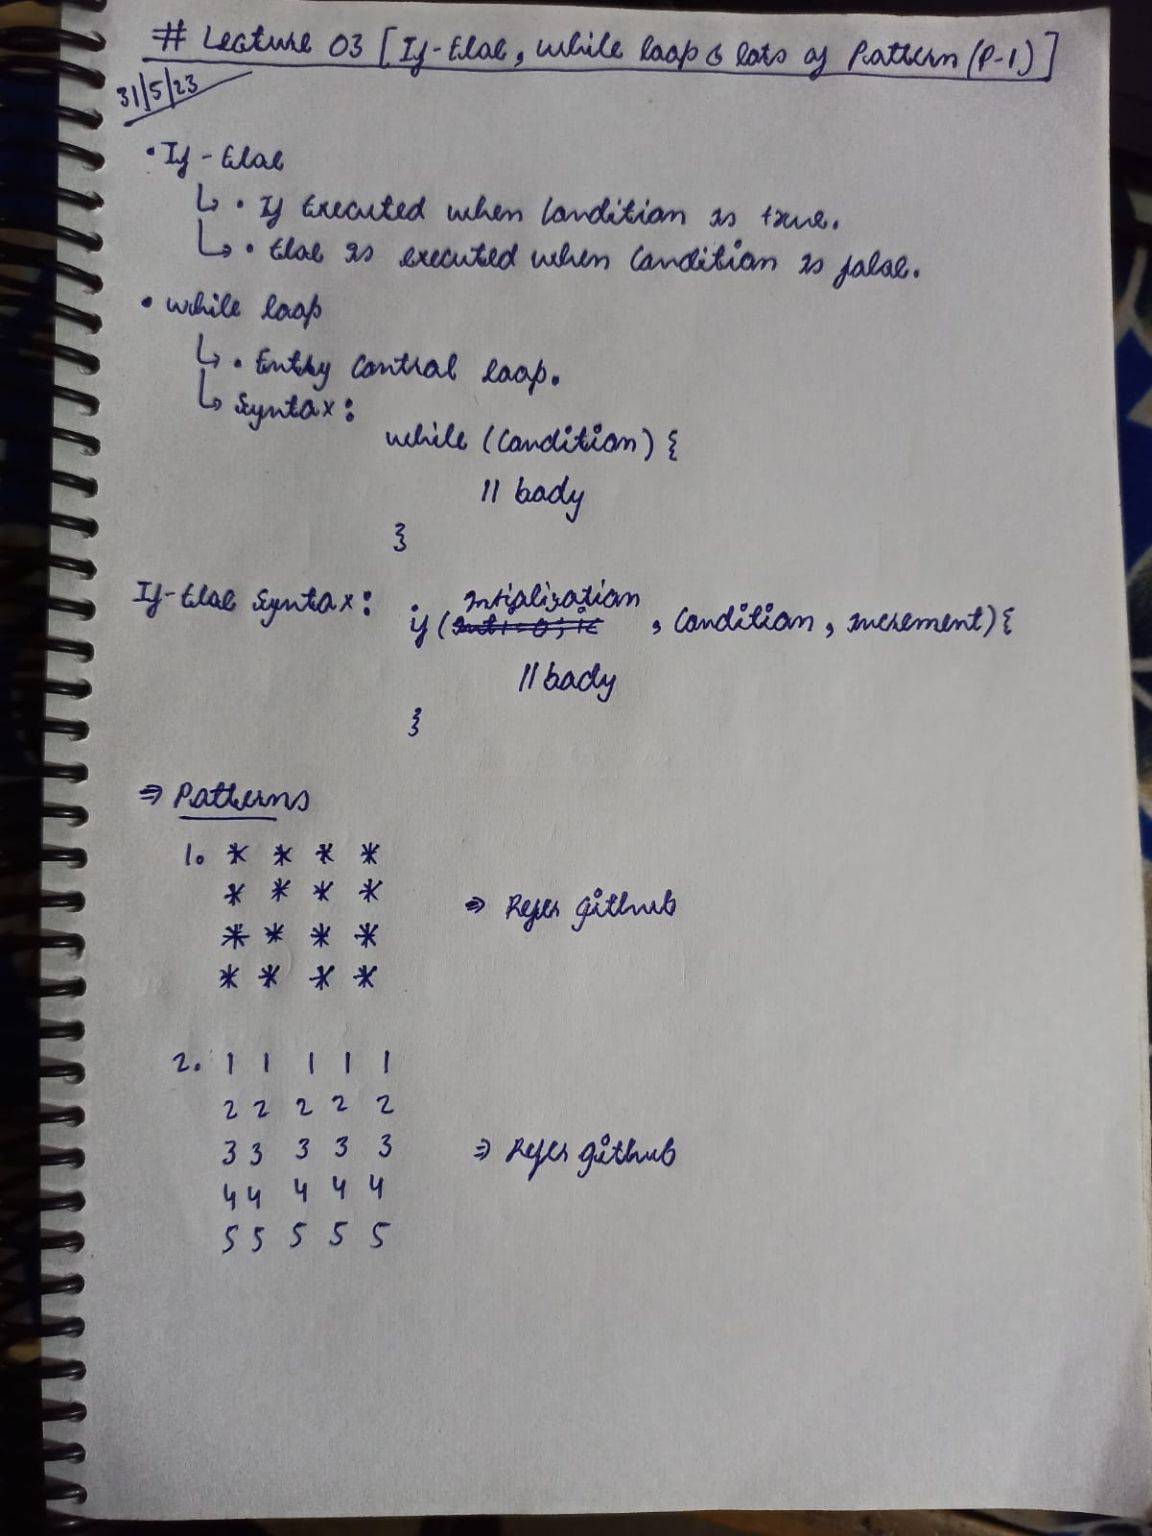 # Lecture 03 [If-Else, while loop & lots of Pattern (P-1)]
31/5/23
• If-Else
↳ • If Executed when Condition is true.
↳ • Else is executed when Condition is false.
• while loop
↳ • Entry Control loop.
↳ Syntax:
while (Condition) {
// body
}
If-Else Syntax: if (intialization, Condition, increment) {
// body
}
⇒ Patterns
1. * * * *
* * * * ⇒ Refer github
* * * *
* * * *
2. 1 1 1 1 1
2 2 2 2 2
3 3 3 3 3 ⇒ Refer github
4 4 4 4 4
5 5 5 5 5